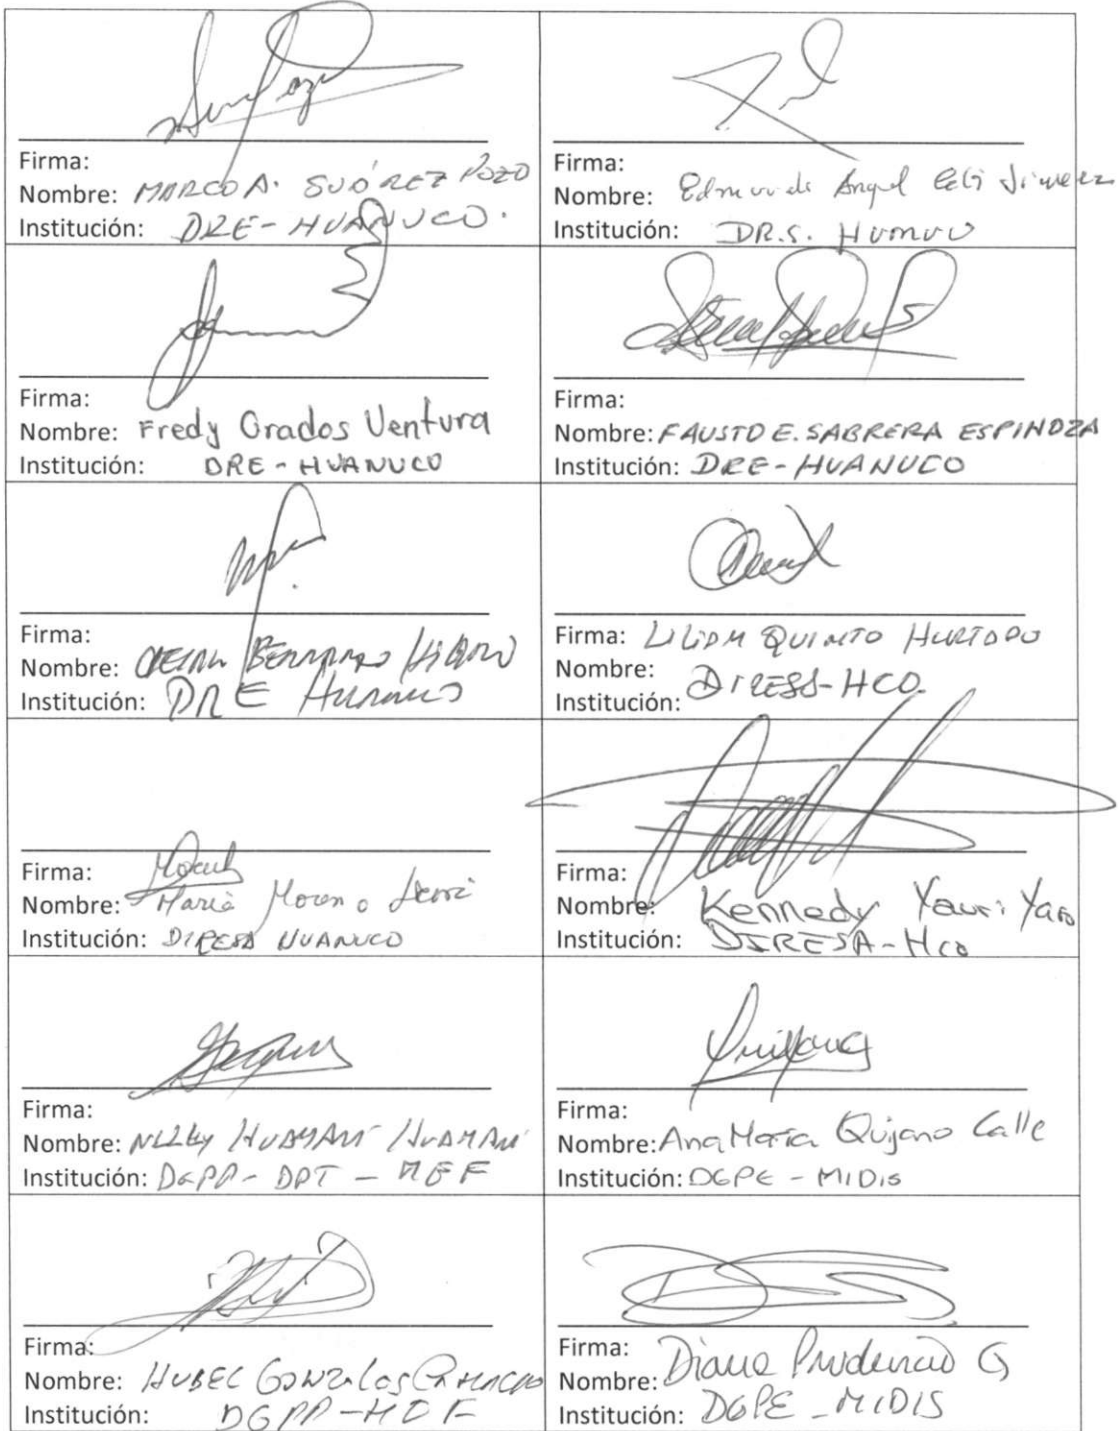 Firma:
Nombre: MARCO A. SUÁREZ POZO
Institución: DRE-HUANUCO.
Firma:
Nombre: Edmundo Angel Celi Jimenez
Institución: DR.S.
Firma:
Nombre: Fredy Grados Ventura
Institución: DRE-HUANUCO
Firma:
Nombre: FAUSTO E. SABRERA ESPINOZA
Institución: DRE-HUANUCO
Firma:
Nombre:
Institución: DRE
Firma: LILIAM QUINTO HURTADO
Nombre:
Institución: DIRESS-HCO.
Firma:
Nombre: Maria Moreno
Institución: DIRESA HUANUCO
Firma:
Nombre: Kennedy Yauri Yaro
Institución: DIRESA-Hco
Firma:
Nombre: NELLY HUAMANÍ HUAMANÍ
Institución: DGPP-DPT-MEF
Firma:
Nombre: Ana Maria Quijano Calle
Institución: DGPE - MIDIS
Firma:
Nombre:
Institución: DGPP-MEF
Firma:
Nombre: Diana Prudencio G
Institución: DGPE - MIDIS